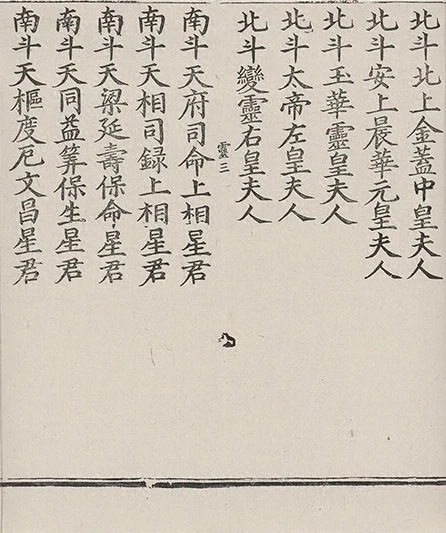 北斗北上金蓋中皇夫人
北斗安上晨華元皇夫人
北斗玉華靈皇夫人
北斗太帝左皇夫人
北斗變靈右皇夫人
靈三
南斗天府司命上相星君
南斗天相司録上相星君
南斗天梁延壽保命星君
南斗天同益筭保生星君
南斗天樞度厄文昌星君